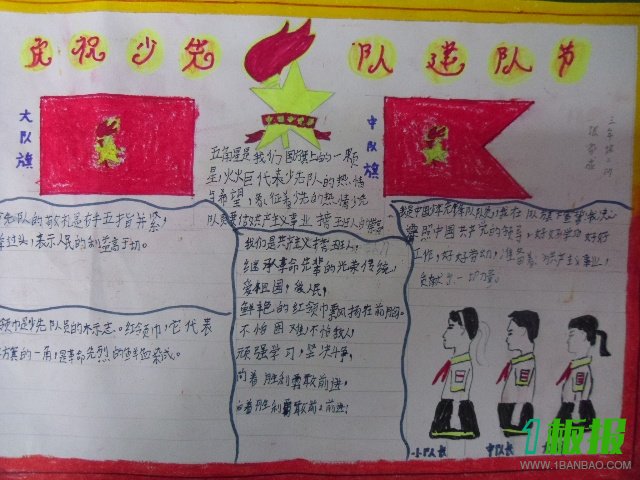 庆祝少先队建队节
大队旗
中队旗
三年级二班
五角星是我们国旗上的一颗
星,火炬代表少先队的热情
与希望,象征着
队员要做共产主义事业接班人的
先队的敬礼是右手五指并紧,
过头,表示人民的利益高于一切。
我是中国少年先锋队队员,我在队旗下宣誓我决心
遵照中国共产党的领导,好好学习好好
工作,好好劳动,准备着为共产主义事业,
贡献一切力量。
我们是共产主义接班人,
继承革命先辈的光荣传统,
爱祖国,爱人民,
鲜艳的红领巾飘扬在前胸。
不怕困难,不怕敌人,
顽强学习,坚决斗争,
向着胜利勇敢前进,
向着胜利勇敢前进前进,
领巾是少先队员的标志。红领巾,它代表
旗的一角,是革命先烈的鲜血染成。
小队长
中队长
大
1板报
WWW.1BANBAO.COM